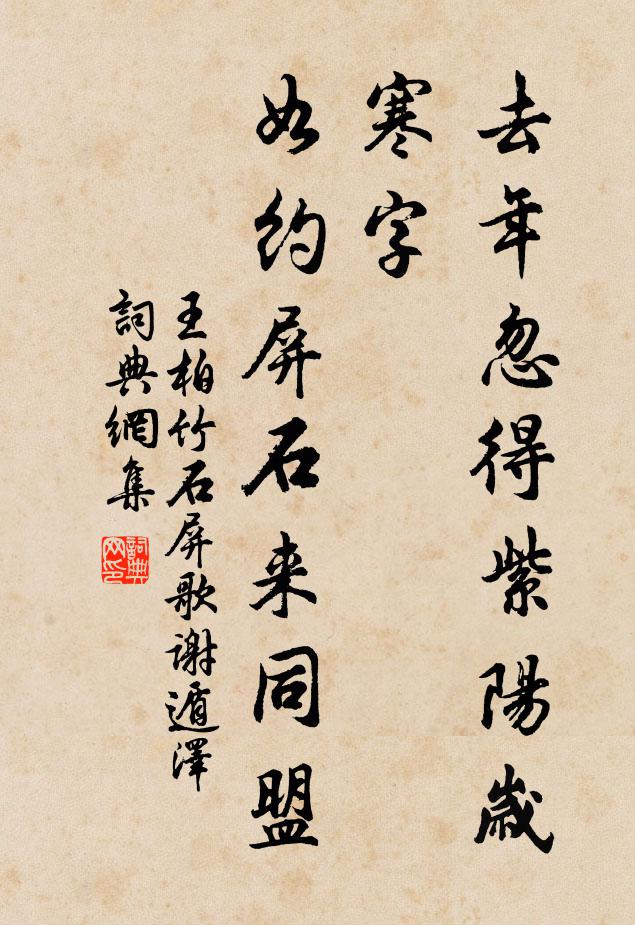 去年忽得紫陽歲
寒字
如约屏石来同盟
王柏竹石屏歌謝遁澤
詞典網集
詞典网印